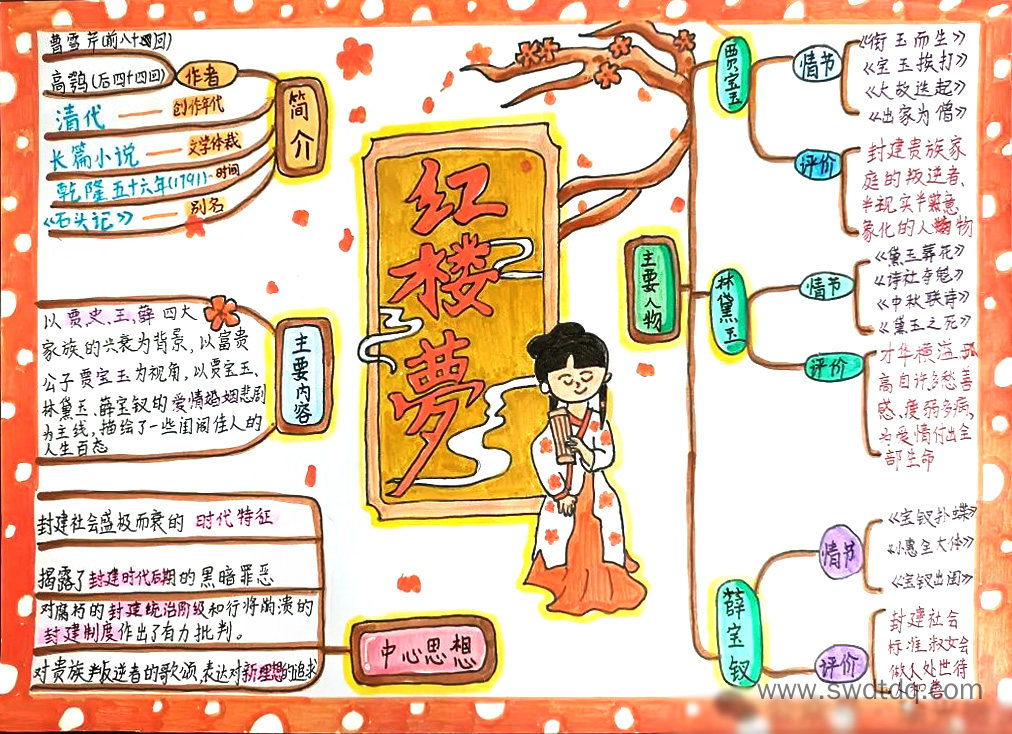 曹雪芹(前八十回)
高鹗(后四十四回)
作者
清代
创作年代
长篇小说
文学体裁
乾隆五十六年(1791)
时间
《石头记》
别名
简介
以贾、史、王、薛四大
家族的兴衰为背景,以富贵
公子贾宝玉为视角,以贾宝玉、
林黛玉、薛宝钗的爱情婚姻悲剧
为主线,描绘了一些闺阁佳人的
人生百态
主要内容
封建社会盛极而衰的时代特征
揭露了封建时代后期的黑暗罪恶
对腐朽的封建统治阶级和行将崩溃的
封建制度作出了有力批判。
对贵族叛逆者的歌颂,表达对新理想的追求
中心思想
红楼夢
主要人物
贾宝玉
情节
《衔玉而生》
《宝玉挨打》
《大故迭起》
《出家为僧》
评价
封建贵族家
庭的叛逆者、
半现实半
象化的人物
林黛玉
情节
《黛玉葬花》
《诗社夺魁》
《中秋联诗》
《黛玉之死》
评价
才华横溢、孤
高自许多愁善
感、瘦弱多病、
为爱情付出全
部生命
薛宝钗
情节
《宝钗扑蝶》
《小惠全大体》
《宝钗出闺》
评价
封建社会
标准淑女会
做人处世待
人和善
www.swdtdq.com